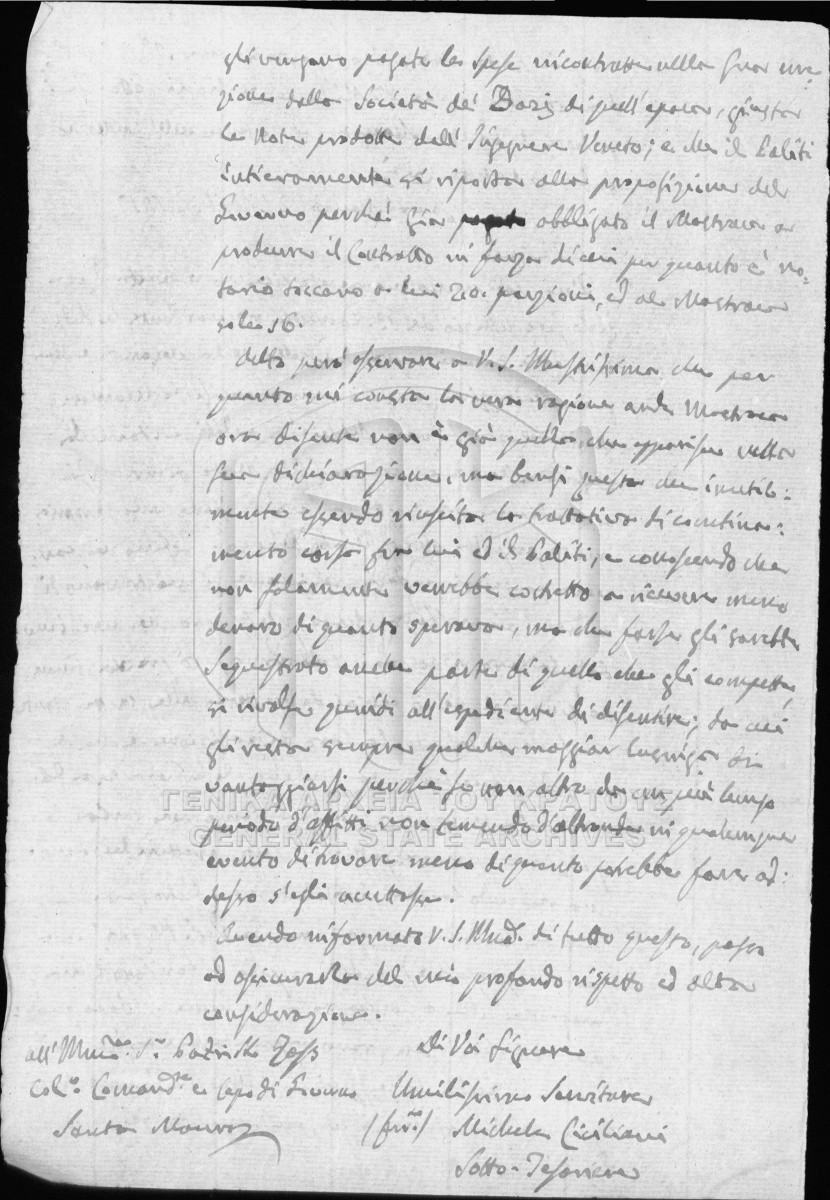 gli vengano pagate le spese incontrate nella sua ere-
zione dalla Società de' Dazj di quell'epoca, giusta
le Note prodotte dall'Ingegnere Veneto; e che il Caliti
intieramente si riporta alla proposizione del
Governo perchè già obbligato il Mostraco a
produrre il Contratto in forza di cui per quanto è no-
torio toccano a lui 20. porzioni, ed al Mostraco
sole 16.
Devo però osservare a V. S. Illustrissima che per
quanto mi consta la vera ragione onde Mostraco
ora dissente non è già quella, che apparisce nella
sua dichiarazione, ma bensì questa che inutil=
mente essendo riuscita la trattativa di
corsa fra lui ed il Caliti, e conoscendo che
non solamente verrebbe costretto a ricevere meno
denaro di quanto sperava, ma che forse gli sarebbe
sequestrato anche parte di quello che gli compette,
si rivolse quindi all'espediente di dissentire; da cui
gli resta sempre qualche maggior lusinga di
vantaggiarsi perchè se non altro da un più lungo
periodo d'affitti non temendo d'altronde in qualunque
evento di trovare meno di quanto potrebbe fare ad=
desso s'egli accettasse.
Avendo informato V. S. Illma. di tutto questo, passo
ad assicurarla del mio profondo rispetto ed alta
considerazione.
all'Illmo. Sr. Patrizio Ross
Di Voi Signore
Colo. Comandte e Capo di Governo
Umilissimo Servitore
Santa Maura
(firmo.) Michele Ciciliani
Sotto-Tesoriere
ΓΕΝΙΚΑ ΑΡΧΕΙΑ ΤΟΥ ΚΡΑΤΟΥΣ
GENERAL STATE ARCHIVES